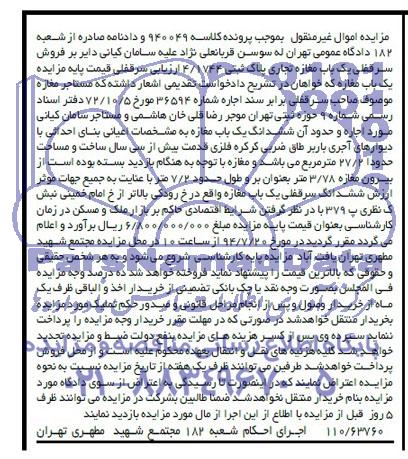 مزایده اموال غیرمنقول بموجب پرونده کلاسه ۹۴۰۰۴۹ و دادنامه صادره از شعبه
۱۸۲ دادگاه عمومی تهران له سوسن قربانعلی نژاد علیه سامان کیانی دایر بر فروش
سرقفلی یک باب مغازه تجاری پلاک ثبتی ۴/۱۷۴۴ ارزیابی سرقفلی قیمت پایه مزایده
یک باب مغازه که خواهان در تشریح دادخواست تقدیمی اشعار داشته که مستاجر مغازه
موصوف صاحب سرقفلی برابر سند اجاره شماره ۳۶۵۹۴ مورخ ۷۲/۱۰/۵ دفتر اسناد
رسمی شماره ۹ حوزه ثبتی تهران موجر رضا قلی خان هاشمی و مستاجر سامان کیانی
مورد اجاره و حدود آن ششدانگ یک باب مغازه به مشخصات اعیانی بنای احداثی با
دیوارهای آجری باربر طاق ضربی کرکره فلزی قدمت بیش از سی سال ساخت و مساحت
حدودا ۲۷/۲ مترمربع می باشد و مغازه با توجه به هنگام بازدید بسته بوده است از
بیرون مغازه ۳/۷۸ متر بعنوان بر و طول حدود ۷/۲ متر با عنایت به جمیع جهات موثر
ارزش ششدانگ سرقفلی یک باب مغازه واقع در خ رودکی بالاتر از خ امام خمینی نبش
ک نظری پ ۳۷۹ با در نظر گرفتن شرایط اقتصادی حاکم بر بازار ملک و مسکن در زمان
کارشناسی بعنوان قیمت پایه مزایده مبلغ ۶/۸۰۰/۰۰۰/۰۰۰ ریال برآورد و اعلام
می گردد مقرر گردید در مورخ ۹۴/۷/۲۰ از ساعت ۱۰ در محل مزایده مجتمع شهید
مطهری تهران یافت آباد مزایده پایه کارشناسی شروع می شود و به هر شخص حقیقی
و حقوقی که بالاترین قیمت را پیشنهاد نماید فروخته خواهد شد ده درصد وجه مزایده
فی المجلس بصورت وجه نقد یا چک بانکی تضمینی از خریدار اخذ و الباقی ظرف یک
ماه از خریدار وصول و پس از انجام مراحل قانونی و صدور حکم تملیک مورد مزایده
بخریدار منتقل خواهدشد در صورتی که در مهلت مقرر خریدار وجه مزایده را پرداخت
ننماید سپرده وی پس از کسر هزینه های مزایده بنفع دولت ضبط و مزایده تجدید
خواهد شد کلیه هزینه های نقل و انتقال بعهده محکوم علیه است و از محل فروش
پرداخت خواهدشد طرفین می توانند ظرف یک هفته از تاریخ مزایده نسبت به نحوه
مزایده اعتراض نمایند که در اینصورت تا رسیدگی به اعتراض از سوی دادگاه مورد
مزایده بنام خریدار منتقل نخواهدشد ضمنا طالبین بشرکت در مزایده می توانند ظرف
۵ روز قبل از مزایده با اطلاع از این اجرا از مال مورد مزایده بازدید نمایند
۱۱۰/۶۳۷۶۰ اجرای احکام شعبه ۱۸۲ مجتمع شهید مطهری تهران